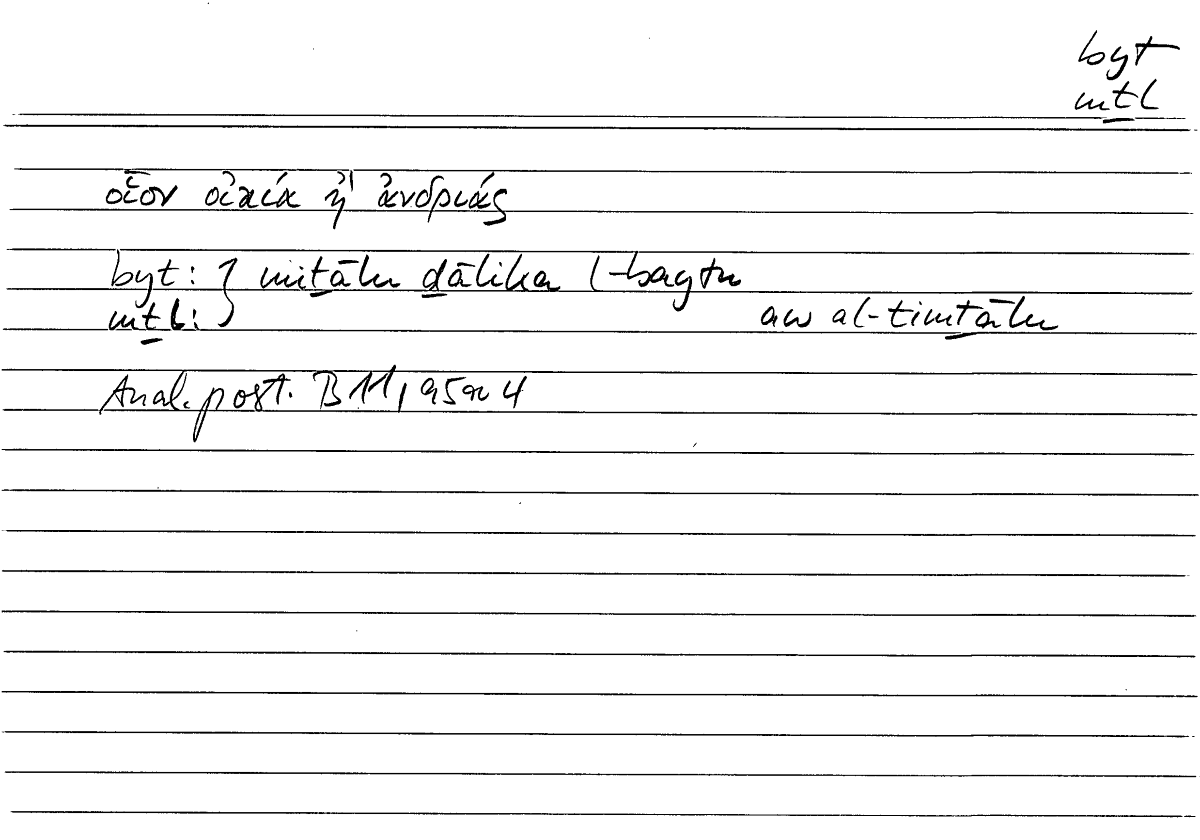 byt
mṯl
οἷον οἰκία ἢ ἀνδριάς
byt: } miṯālu ḏālika l-baytu
mṯl: } aw al-timṯālu
Anal. post. B 11, 95a 4